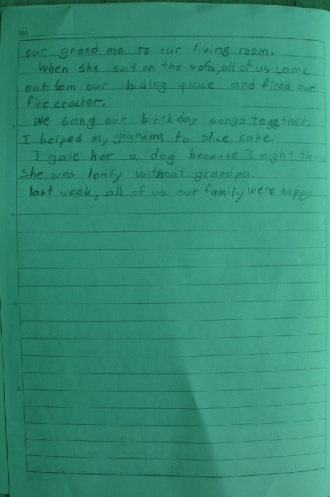 our grand ma to our living room.
When she sat on the sofa, all of us came
out fom our hiding place and fired our
fire cracker.
We sang our birthday songs together.
I helped my grandma to slice cake.
I gave her a dog because I might think
she was lonly without grandpa.
last week, all of us our family were happy